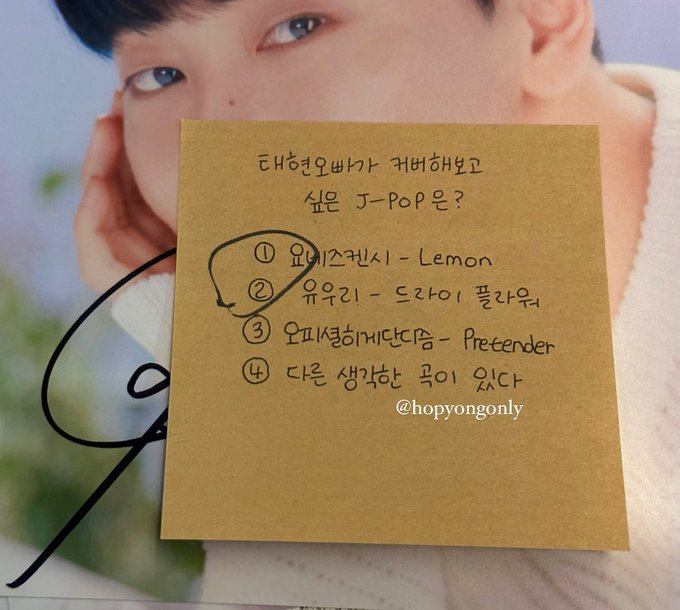 태현오빠가 커버해보고
싶은 J-POP은?
① 요네즈켄시 - Lemon
② 유우리 - 드라이 플라워
③ 오피셜히게단디즘 - Pretender
④ 다른 생각한 곡이 있다
@hopyongonly